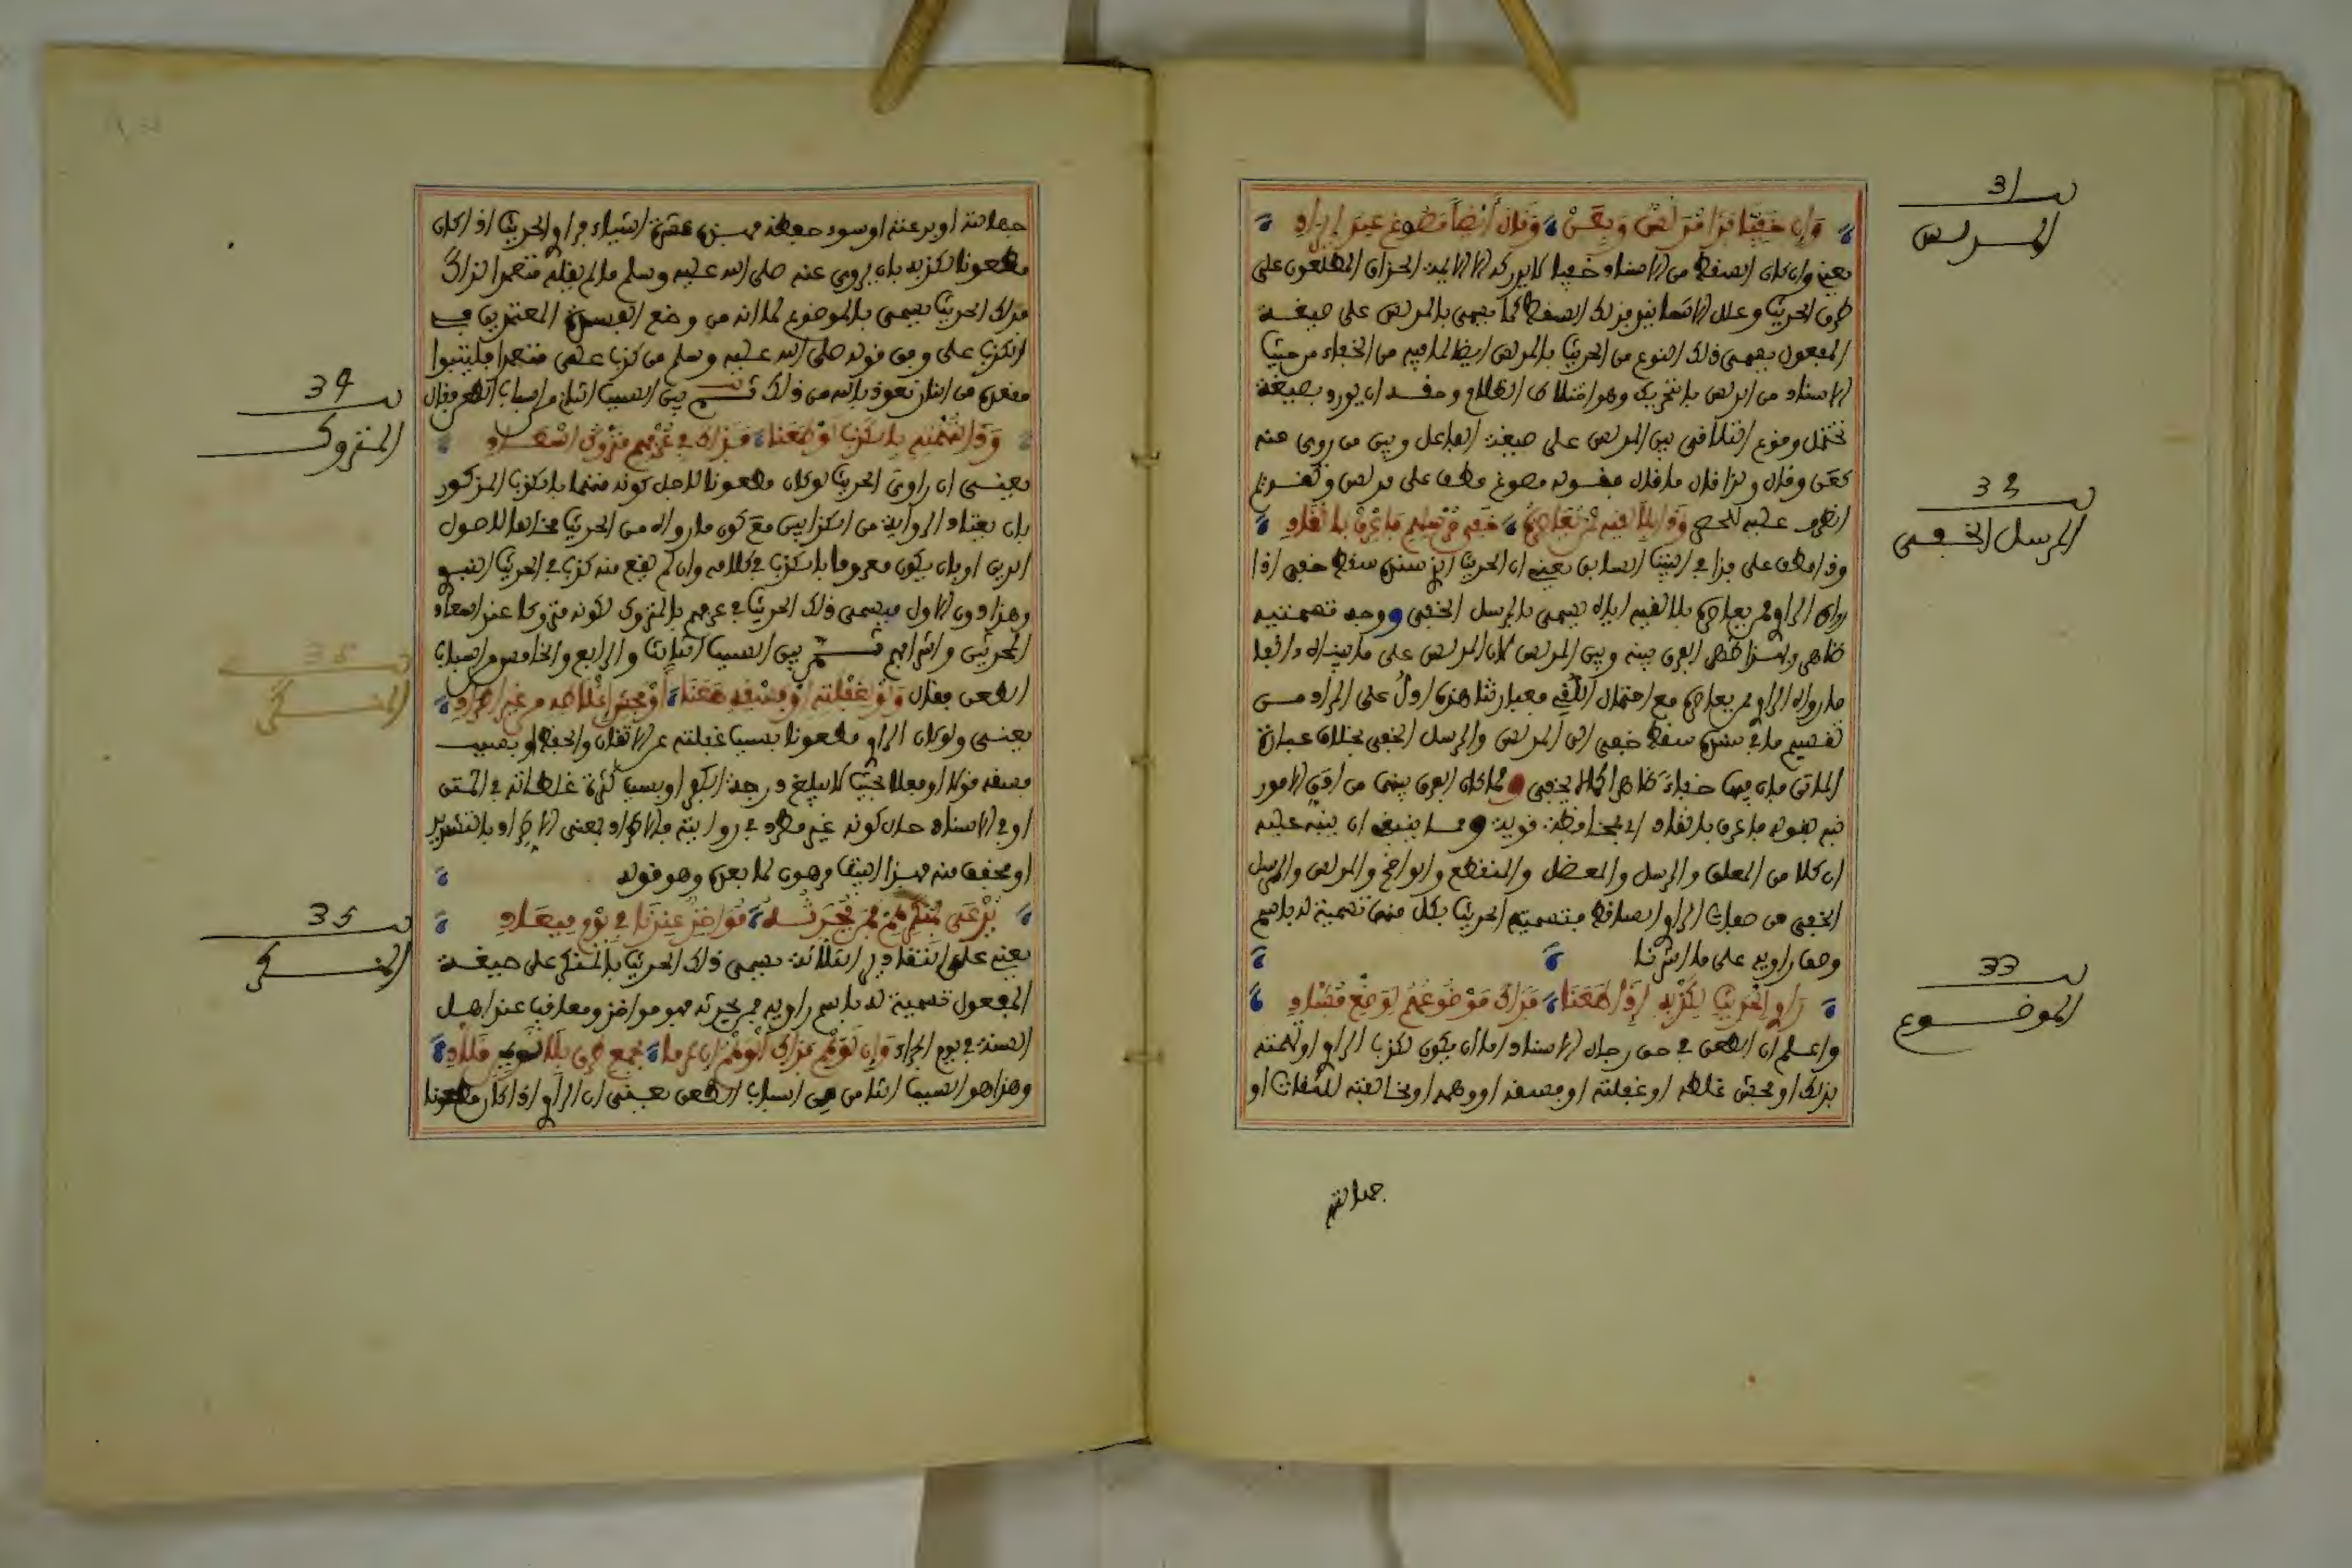 31
المدلس
وإن خفيا فذا مدلس وبعن وقال أيضا مصوغ عند إيراد
يعني وإن كان السقط من الإسناد خفيا لا يدركه إلا الأيمة الحذاق المطلعون على
طرق الحديث وعلل الأسانيد فذلك السقط كما يسمى بالمدلس على صيغة
المفعول يسمى ذلك النوع من الحديث بالمدلس أيضا لما فيه من الخفاء من حيث
الإسناد من الدلس بالتحريك وهو اختلاط الظلام وحقه أن يورد بصيغة
تحتمل وقوع التلاقي بين المدلس على صيغة الفاعل وبين من روى عنه
كعن وقال وكذا قال ما قال فقوله مصوغ عطف على مدلس
32
المرسل الخفي
انظر عليه وذا بلا لقيه لمن يعاصره خفي مرسلهم ما عرف بالقاد
وذا عطف على فذا في البيت السابق يعني أن الحديث الذي سنده سقط خفي إذا
رواه الراوي لمن يعاصره بلا لقيه إياه يسمى بالمرسل الخفي ووجه تسميته
ظاهر وبهذا ظهر الفرق بينه وبين المدلس لأن المدلس على ما بيناه
ما رواه الراوي لمن يعاصره مع احتمال اللقي فعبارتنا هذه أدل على المراد من
تقسيم ما في سنده سقط خفي إلى المدلس والمرسل الخفي بخلاف عبارة
الماتن فإن فيها خفاء ظاهرا كما لا يخفى ولما كان الفرق بينهما من أدق الأمور
نبه بقوله ما عرف بالقاد إلى محافظة قوية ومما ينبغي أن ينبه عليه
أن كلا من المعلق والمرسل والمعضل والمنقطع والواضح والمدلس والمرسل
الخفي من صفات الراوي الساقط فتسمية الحديث بكل منها تسمية له باسم
وصف راويه على ما أشرنا
33
الموضوع
راوي الحديث لكذبه إذا طعنا فذاك موضوعهم لوضع قصاد
واعلم أن الطعن في حق رجال الإسناد إما أن يكون لكذب الراوي أو تهمته
بذلك أو فحش غلطه أو غفلته أو فسقه أو وهمه أو مخالفته للثقات أو
جهالته
جهالته أو بدعته أو سوء حفظه فهذه عشرة أشياء فراوي الحديث إذا كان
مطعونا لكذبه بأن يروي عنه صلى الله عليه وسلم ما لم يقله متعمدا لذلك
فذلك الحديث يسمى بالموضوع لما أنه من وضع الفسقة المعتدين في
الكذب على ومن قوله صلى الله عليه وسلم من كذب علي متعمدا فليتبوأ
مقعده من النار نعوذ بالله من ذلك ثم بين السبب الثاني من أسباب الطعن فقال
34
المتروك
وذا لتهمته بالكذب لو طعنا فذاك في عرفهم متروك أسعاد
يعني أن راوي الحديث لو كان مطعونا لأجل كونه متهما بالكذب المذكور
بأن يعتاد الرواية من الكذابين مع كون ما رواه من الحديث مخالفا لأصول
الدين أو بأن يكون معروفا بالكذب في كلامه وإن لم يقع منه كذب في الحديث النبوي
وهذا دون الأول فيسمى ذلك الحديث في عرفهم بالمتروك لكونه متروكا عند أسعاد
المحدثين وأشرافهم ثم بين السبب الثالث والرابع والخامس من أسباب
35
المنكر
الطعن فقال ولو لغفلته أو فسقه طعنا أو فحش أغلاطه من غير إطراد
يعني ولو كان الراوي مطعونا بسبب غفلته عن الإتقان والحفظ أو بسبب
فسقه قولا أو فعلا بحيث لا يبلغ درجة الكفر أو بسبب كثرة غلطاته في المتن
أو في الإسناد حال كونه غير مطرد في روايته فالإطراد بمعنى الإطراد بالتشديد
أو مخفف منه فهذا البيت مرهون لما بعده وهو قوله
35
المنكر
يدعى بمنكرهم لمن يحدثه مؤاخذ عندنا في يوم ميعاد
يعني على التقادير الثلاثة يسمى ذلك الحديث بالمنكر على صيغة
المفعول تسمية له باسم راويه لمن يحدثه فهو مؤاخذ ومعاقب عند أهل
السنة في يوم الجزاء وإن توهم فذاك الوهم إن عرفا بجمع طرق
وهذا هو السبب السادس من أسباب الطعن يعني أن الراوي إذا كان مطعونا